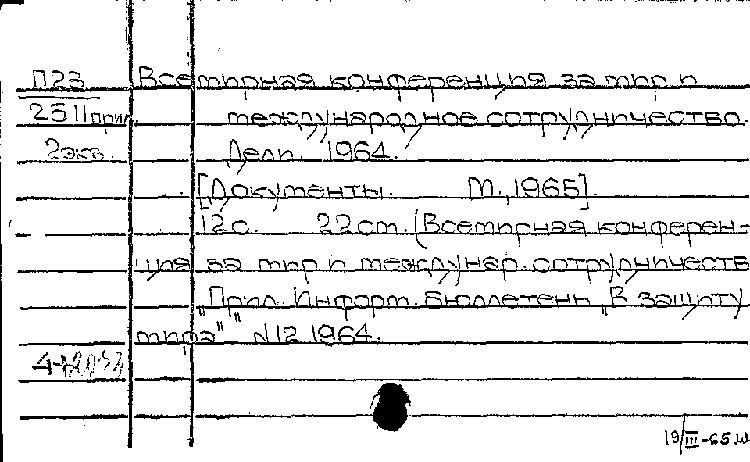 П23 Всемирная конференция за мир и
2511 прил. международное сотрудничество.
2экз. Дели. 1964.
[Документы. М., 1965].
12с. 22см. (Всемирная конферен-
ция за мир и междунар. сотрудничеств
"Прил. Информ. бюллетень "В защиту
мира" N12 1964.
19/III-65